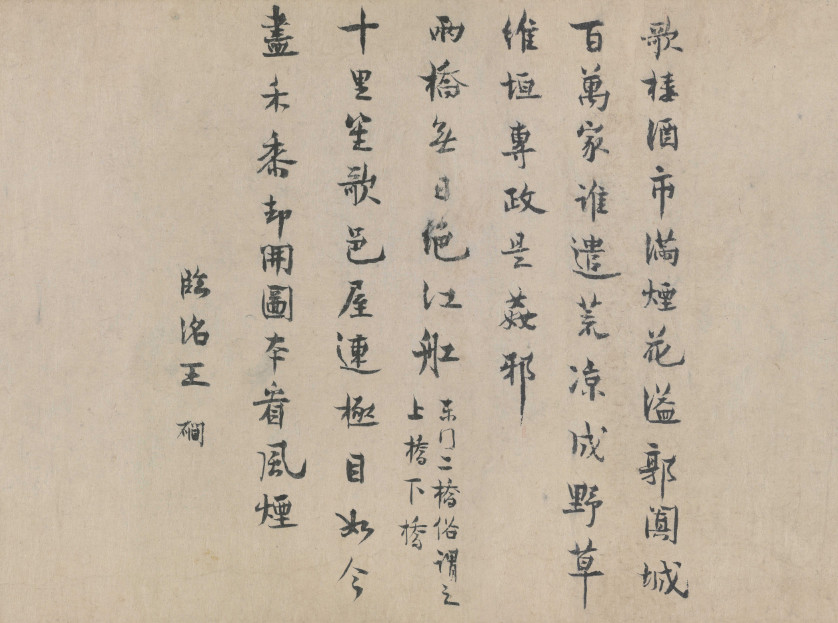 歌樓酒市滿煙花溢郭闐城
百萬家誰遣荒凉成野草
維垣專政是姦邪
兩橋無日絕江舡
東門二橋俗謂之
上橋下橋
十里笙歌邑屋連極目如今
盡禾黍却開圖本看風煙
臨洺王磵